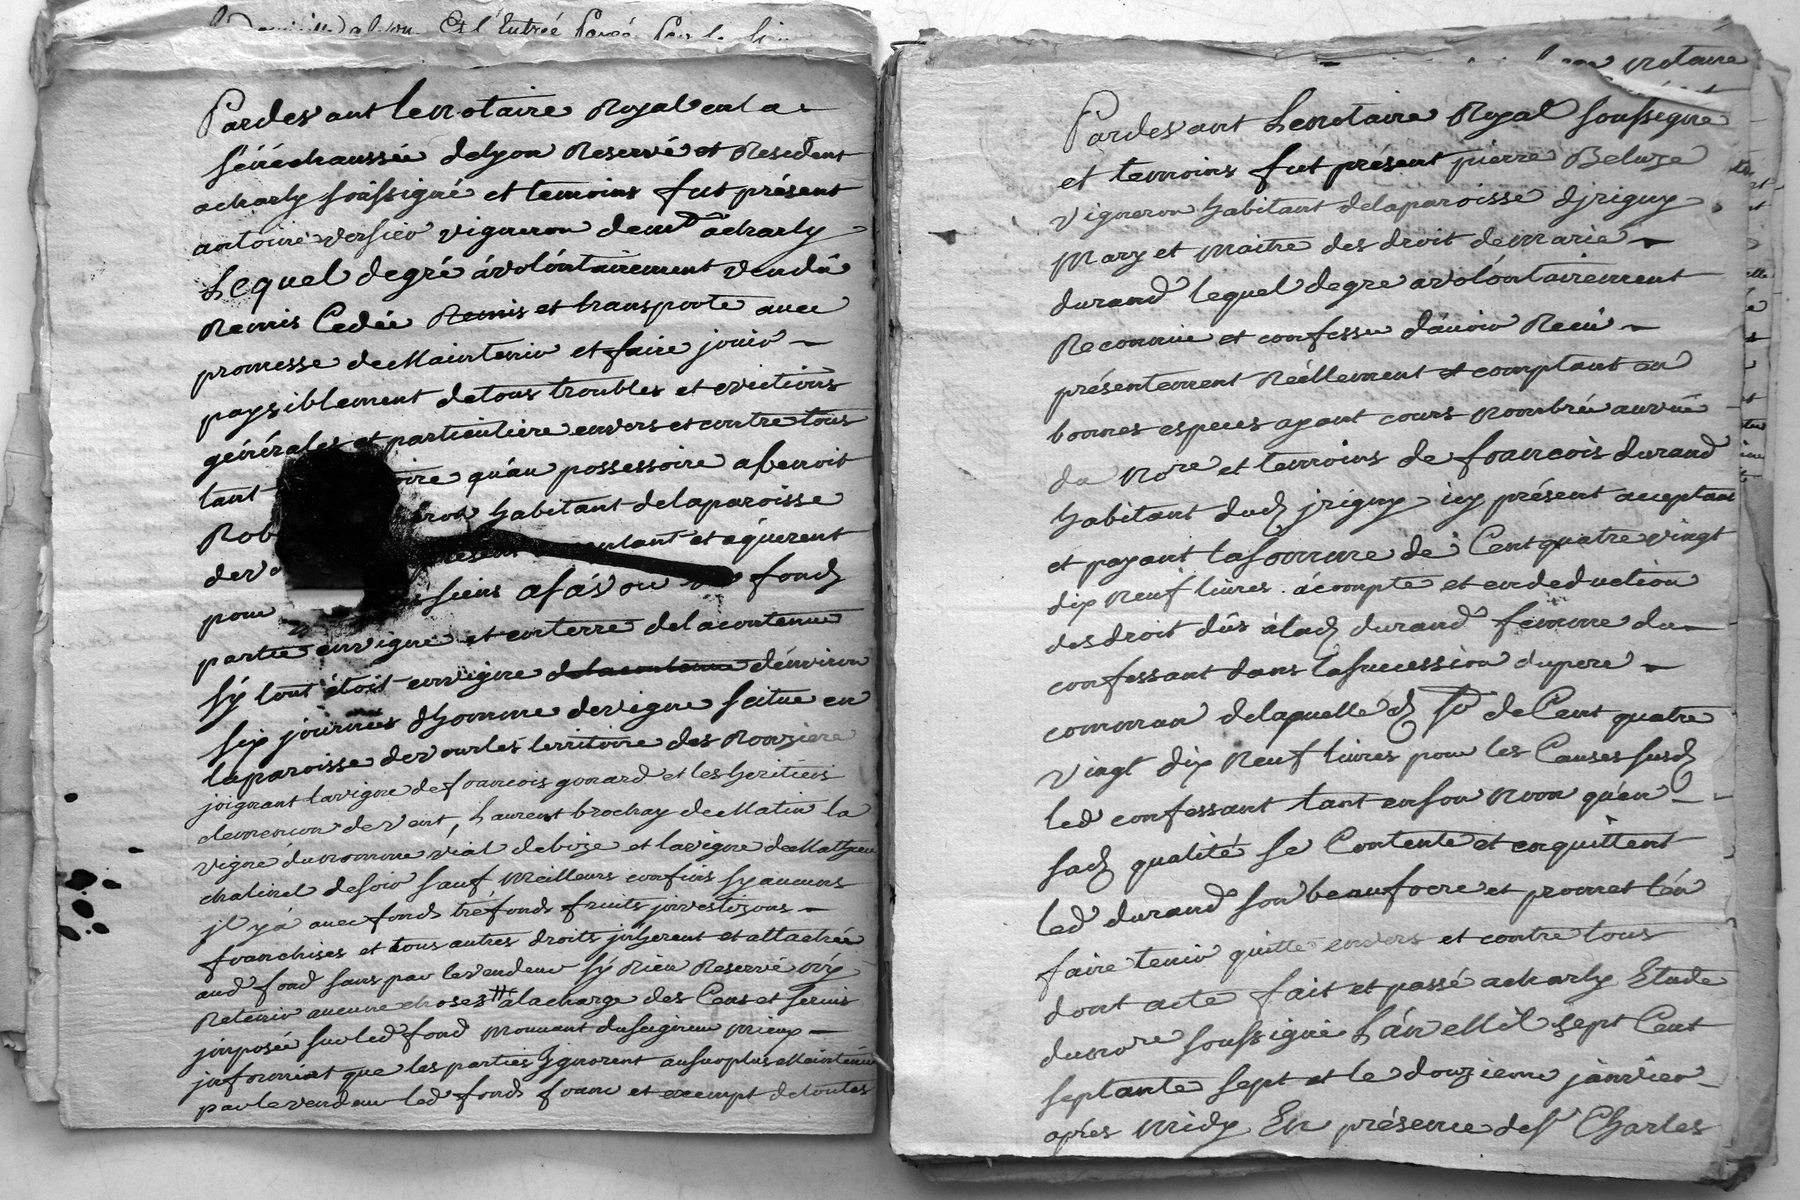 Est l'Entrée
Pardevant le notaire Royal en la
sénéchaussée de lyon Reservé et Resident
a charly soussigné et temoins fut présent
antoine versier vigneron demt a charly
Lequel de gré a volontairement vendu
Remis Cedée Remis et transporté avec
promesse de Maintenir et faire jouir
paysiblement de tous troubles et evictions
générales et particuliere envers et contre tous
tant oire qu'au possessoire a benoit
Rob eron habitant de la paroisse
de v présent tant et aquerent
pour siens a sávoir fonds
partie en vigne et en terre de la contenue
sy tout étoit en vigne de la contenue d'environ
six journées d'homme de vigne scitue en
la paroisse de vourles territoire des Ronziere
joignant la vigne de francois gonard et les heritiers
clemencon de vent, Laurent brochay de Matin la
vigne du nomme vial de bize et la vigne de Mathieu
chatinel de soir sauf Meilleurs confins sy aucuns
jl y á avec fonds tréfonds fruits jnvestizons
franchises et tous autres droits jnherent et attachée
aud fond sans par le vendeur sÿ Rien Reservé nÿ
Retenir aucune choses # a la charge des Cens et servis
jmposée sur led fond Mouvant du seigneur Mieux
jnformé et que les parties Ignorent au surplus Maintenue
par le vendeur led fonds franc et exempt de toutes
notaire
Pardevant Le notaire Royal soussigné
et temoins fut présent pierre Beluze
vigneron habitant de la paroisse d'jrigny
Mary et maitre des droit de marie
durand lequel de gre a volontairement
Reconnue et confesse d'avoir Recu
présentement Réellement et comptant en
bonnes especes ayant cours nombrée au vüe
du Nore et temoins de francois durand
habitant dud jrigny icy présent acceptant
et payant la somme de Cent quatre vingt
dix neuf livres . a compte et en deduction
des droit dûs a lad durand femme du
confessant dans la succession du pere
commun de la quelle d so de Cent quatre
vingt dix neuf livres pour les Causes susd
led confessant tant en son nom qu'en
sad qualité se Contente et enquittent
led durand son beaufrere et promet l'en
faire tenir quitte envers et contre tous
dont acte fait et passé a charly Etude
du nore soussigné L'an Mil sept Cent
septante sept et le douzieme janvier
apres midy En présence de sr Charles